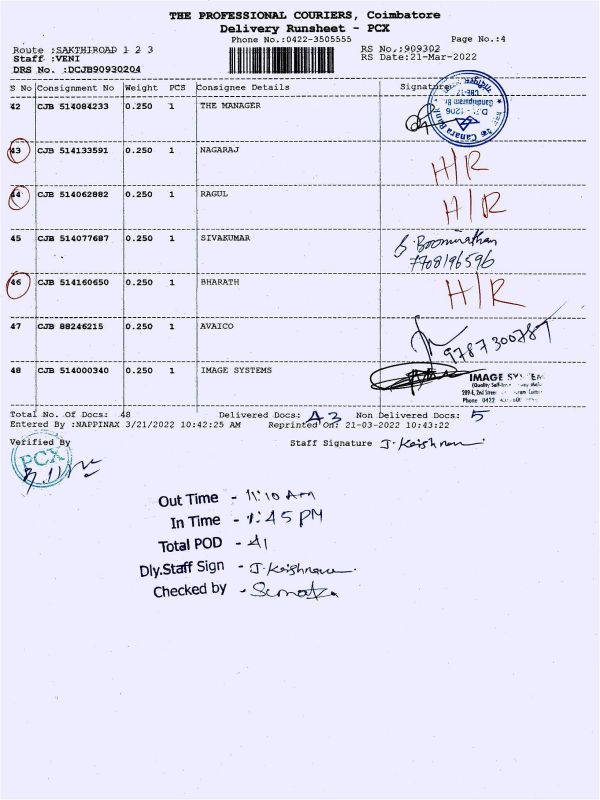 THE PROFESSIONAL COURIERS, Coimbatore
Delivery Runsheet - PCX
Phone No.:0422-3505555 Page No.:4
Route :SAKTHIROAD 1 2 3 RS No.:909302
Staff :VENI RS Date:21-Mar-2022
DRS No. :DCJB90930204
S No Consignment No Weight PCS Consignee Details Signature
42 CJB 514084233 0.250 1 THE MANAGER
Canara Bank
D.P. 1206
Gandhipuram Br.
CBE-12
43 CJB 514133591 0.250 1 NAGARAJ H/R
44 CJB 514062882 0.250 1 RAGUL H/R
45 CJB 514077687 0.250 1 SIVAKUMAR B. Boominathan
7708196596
46 CJB 514160650 0.250 1 BHARATH H/R
47 CJB 88246215 0.250 1 AVAICO 9787300787
48 CJB 514000340 0.250 1 IMAGE SYSTEMS
IMAGE SYSTEM
289-E, 2nd Street
Phone 0422
Total No. Of Docs: 48 Delivered Docs: 43 Non Delivered Docs: 5
Entered By :NAPPINAX 3/21/2022 10:42:25 AM Reprinted On: 21-03-2022 10:43:22
Verified By Staff Signature J. Krishnan
PCX
Out Time - 11:10 Am
In Time - 1:45 PM
Total POD - 41
Dly.Staff Sign - J. Krishnan
Checked by -